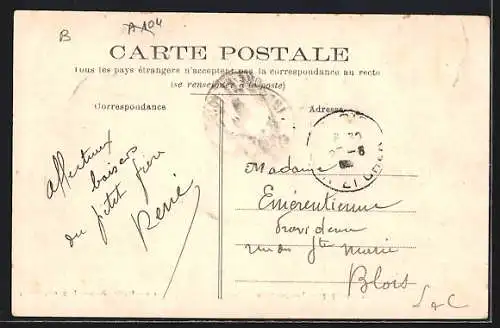 B
A 104
CARTE POSTALE
Tous les pays étrangers n'acceptent pas la correspondance au recto
(se renseigner à la poste)
Correspondance
Adresse
affectueux
baisers
du petit frère
René
Madame
Emérentienne
Providence
rue du Ste Marie
Blois
L et C